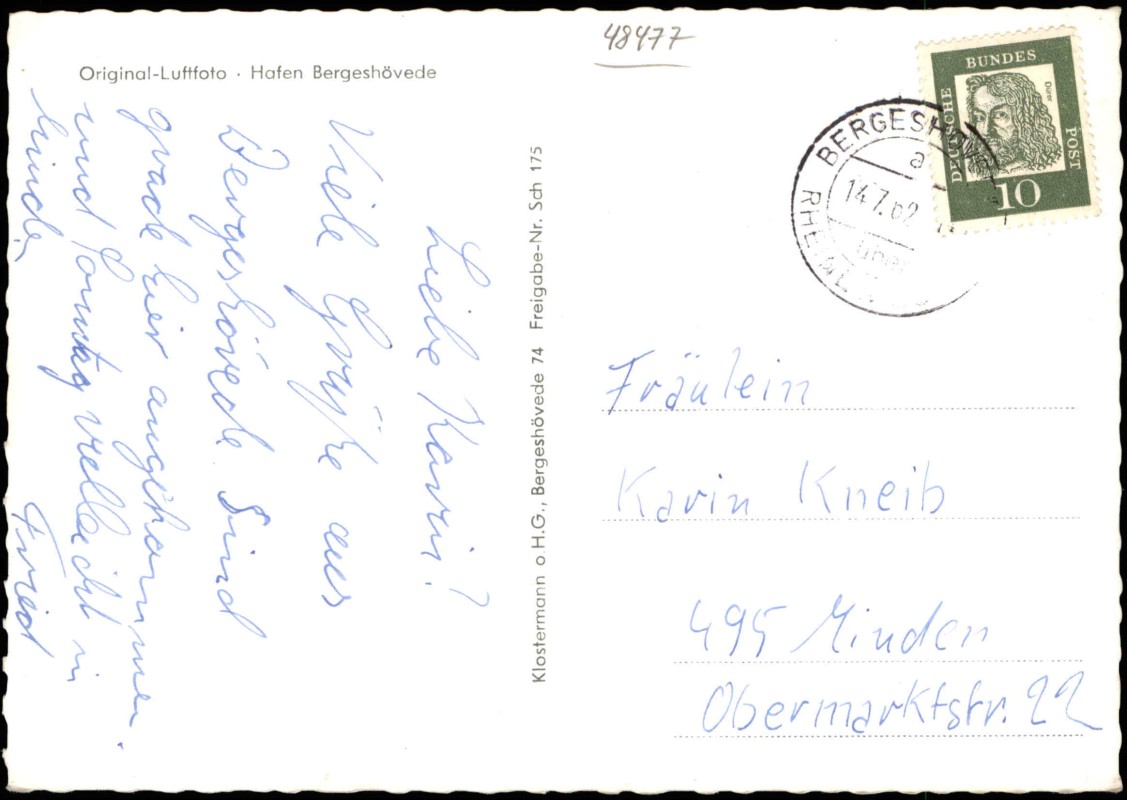 Original-Luftfoto · Hafen Bergeshövede
48477
Liebe Karin!
Viele Grüße aus
Bergeshövede. Sind
grade hier angekommen.
und Sonntag vielleicht in
Minden.
Fried
Klostermann o.H.G., Bergeshövede 74 Freigabe-Nr. Sch 175
DEUTSCHE
BUNDES
POST
Dürer
10
BERGESHÖV
a
14.7.62
über
RHEINE
Fräulein
Karin Kneib
495 Minden
Obermarktstr. 22